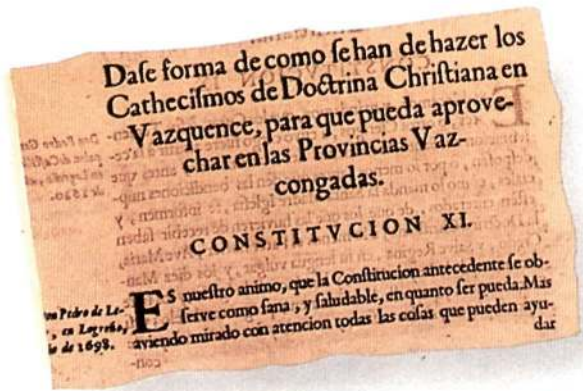 Dase forma de como se han de hazer los
Cathecismos de Doctrina Christiana en
Vazquence, para que pueda aprove-
char en las Provincias Vaz-
congadas.
CONSTITVCION XI.
Pedro de Le-
, en Logroño,
de 1698.
ES nuestro animo, que la Constitucion antecedente se ob-
serve como sana, y saludable, en quanto ser pueda. Mas
aviendo mirado con atencion todas las cosas que pueden ayu-
dar